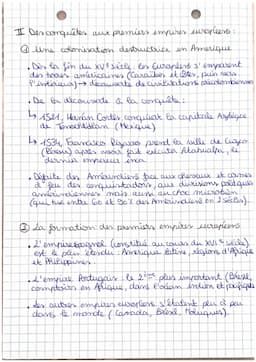 II Des conquêtes aux premiers empires européens :
① Une colonisation destructrice en Amérique
• Dès la fin du XVe siècle, les Européens s'emparent
des terres américaines (Caraïbes et îles, puis vers
l'intérieur) → découverte de civilisations précolombiennes
• De la découverte à la conquête :
↳ 1521, Hernán Cortés conquiert la capitale Aztèque
de Tenochtitlán (Mexique)
↳ 1534, Francisco Pizarro prend la ville de Cuzco
(Pérou) après avoir fait exécuter Atahualpa, le
dernier empereur inca
• Défaite des Amérindiens face aux chevaux et armes
d'feu des conquistadors, aux divisions politiques
amérindiennes mais aussi au choc microbien
(qui tue entre 60 et 90% des Amérindiens en 2 siècles).
② La formation des premiers empires européens
• L'empire espagnol (constitué au cours du XVIe siècle)
est le plus étendu : Amérique latine, régions d'Afrique
et Philippines
• L'empire Portugais : le 2ème plus important (Brésil,
comptoirs en Afrique, dans l'océan Indien et pacifique
• Les autres empires européens s'étalent plus à peu
dans le monde (Canada, Brésil, Moluques).